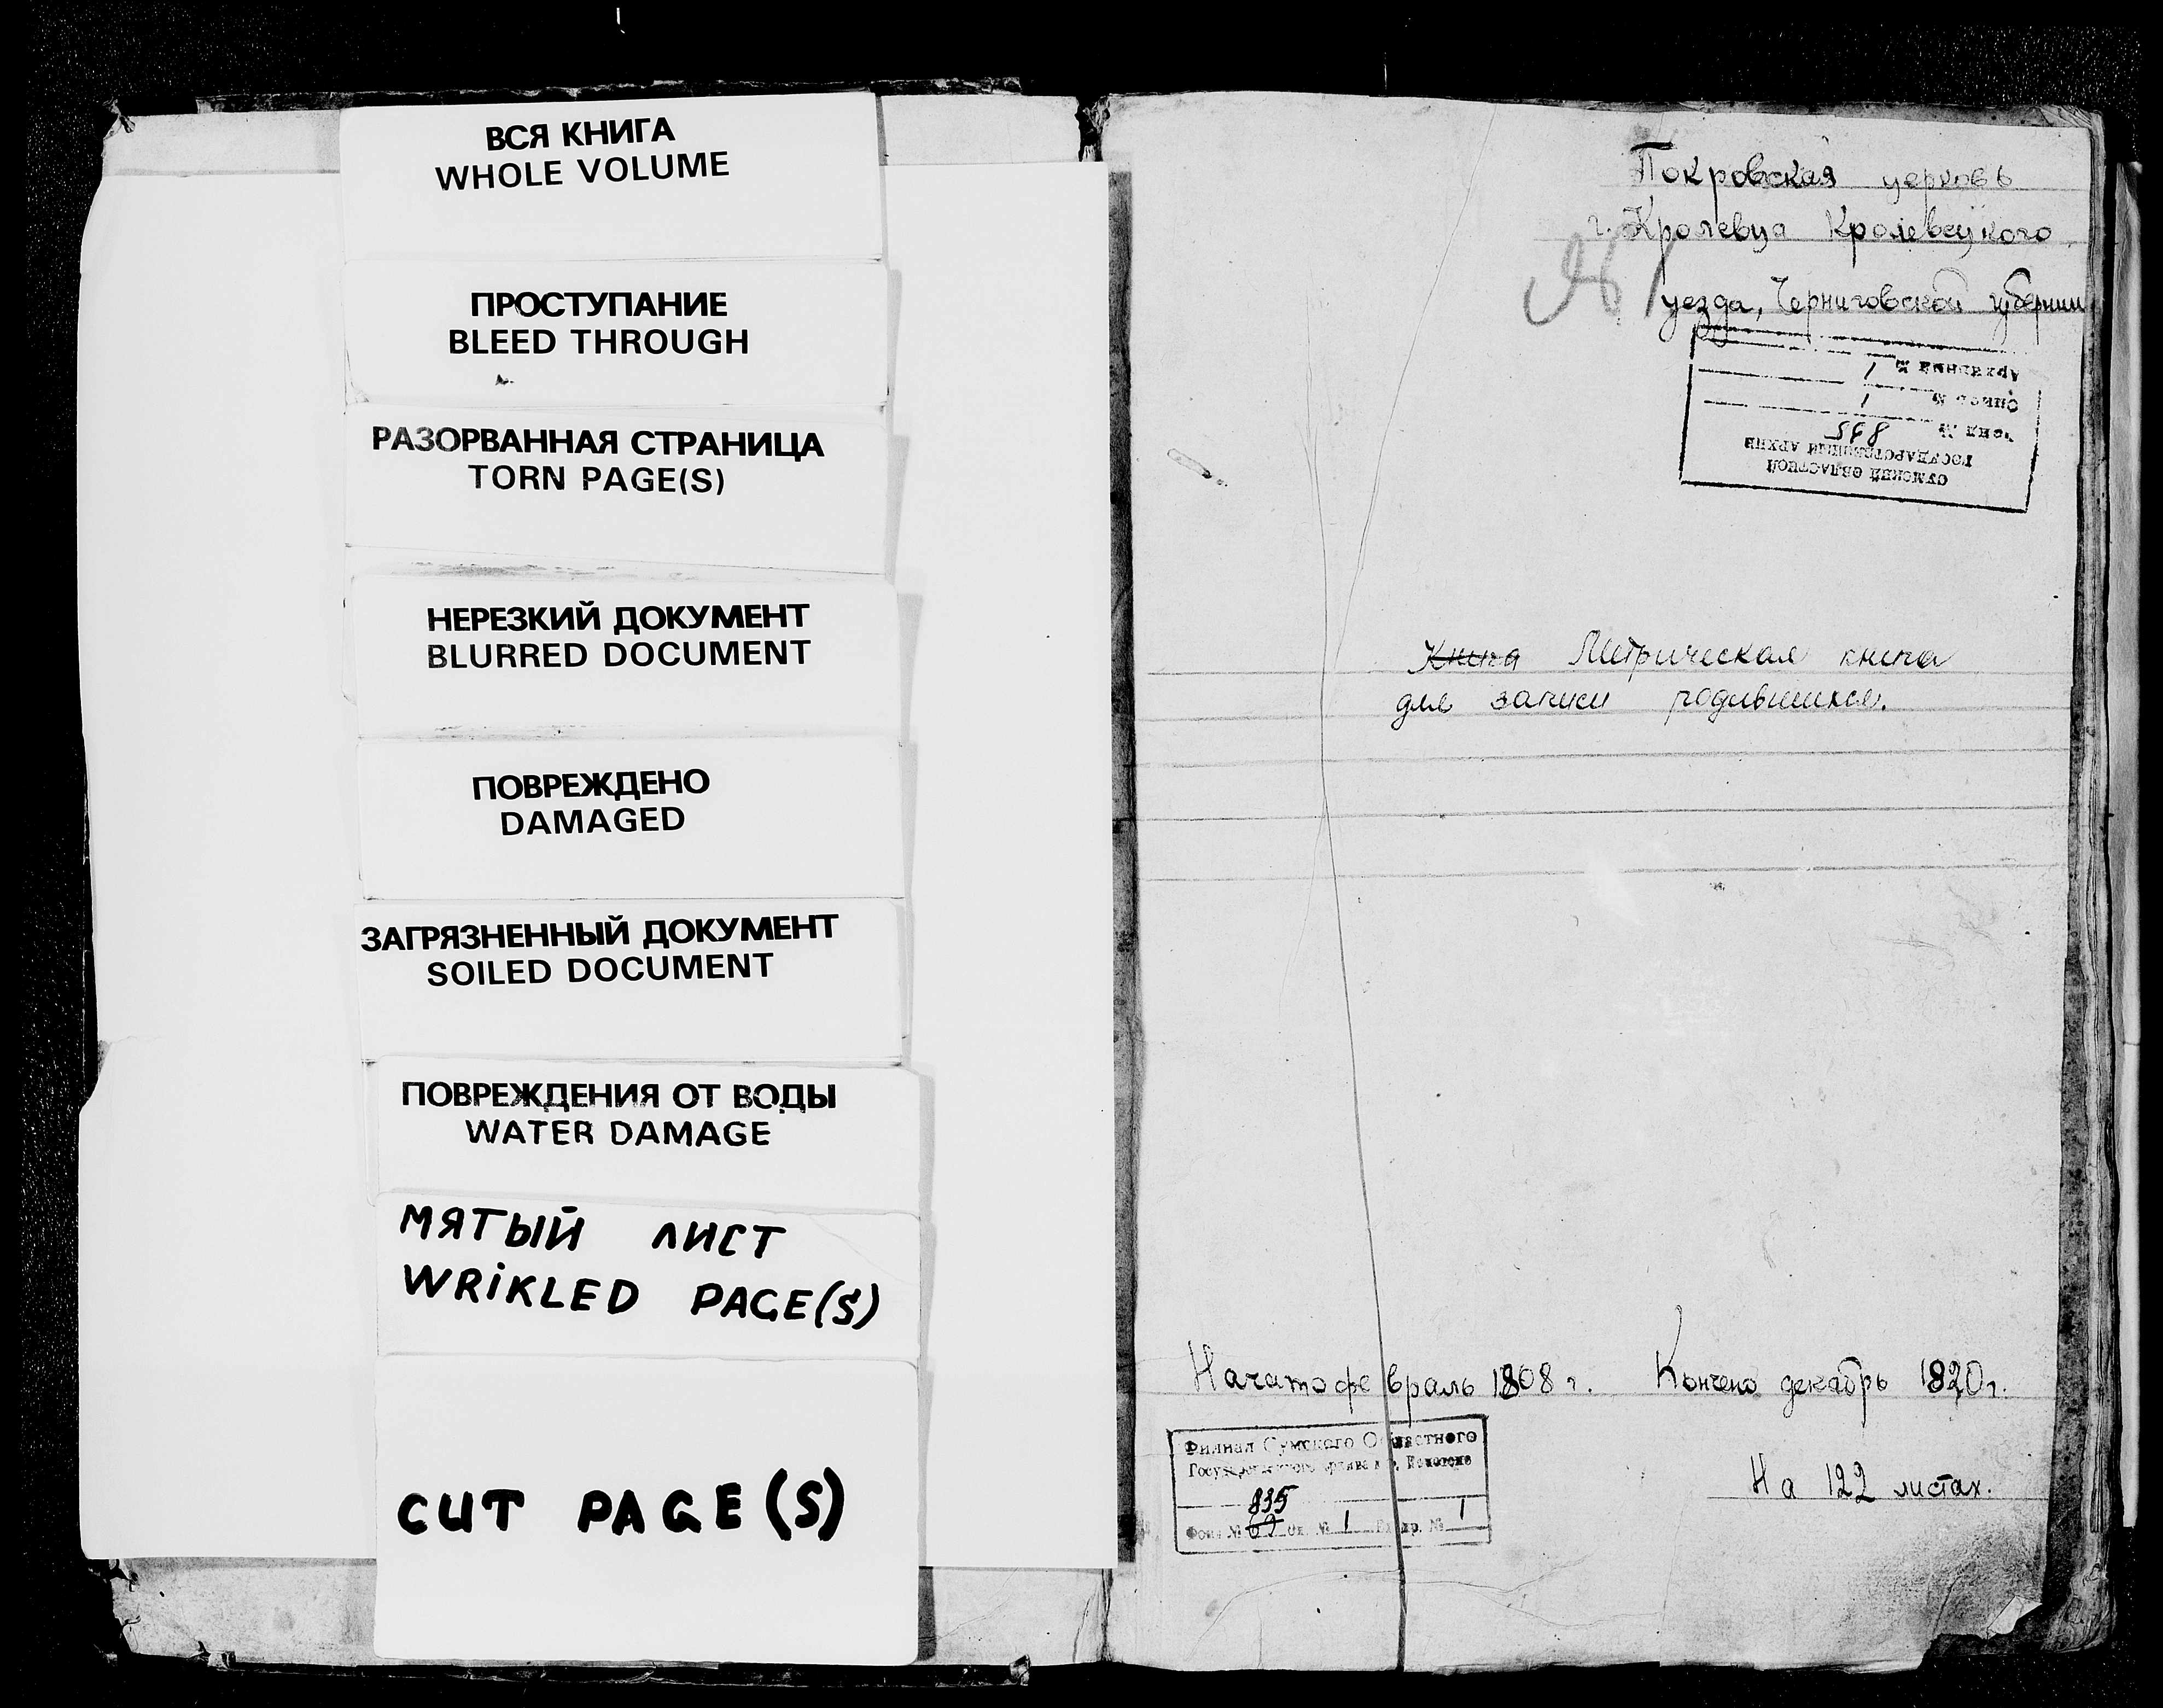 ВСЯ КНИГА
WHOLE VOLUME
ПРОСТУПАНИЕ
BLEED THROUGH
РАЗОРВАННАЯ СТРАНИЦА
TORN PAGE(S)
НЕРЕЗКИЙ ДОКУМЕНТ
BLURRED DOCUMENT
ПОВРЕЖДЕНО
DAMAGED
ЗАГРЯЗНЕННЫЙ ДОКУМЕНТ
SOILED DOCUMENT
ПОВРЕЖДЕНИЯ ОТ ВОДЫ
WATER DAMAGE
МЯТЫЙ ЛИСТ
WRIKLED PAGE(S)
CUT PAGE(S)
Покровская церковь
г. Кролевца Кролевецкого
уезда, Черниговской губернии
СУМСКИЙ ОБЛАСТНОЙ
ГОСУДАРСТВЕННЫЙ АРХИВ
Фонд №
Опись № 1
Архивный № 1
Книга Метрическая книга
для записи родившихся.
Начато февраль 1808 г. Кончено декабрь 1820 г.
Филиал Сумского Областного
Государственного архива в г. Конотопе
835
Фонд № 69 Оп. № 1 Ед. хр. № 1
На 122 листах.